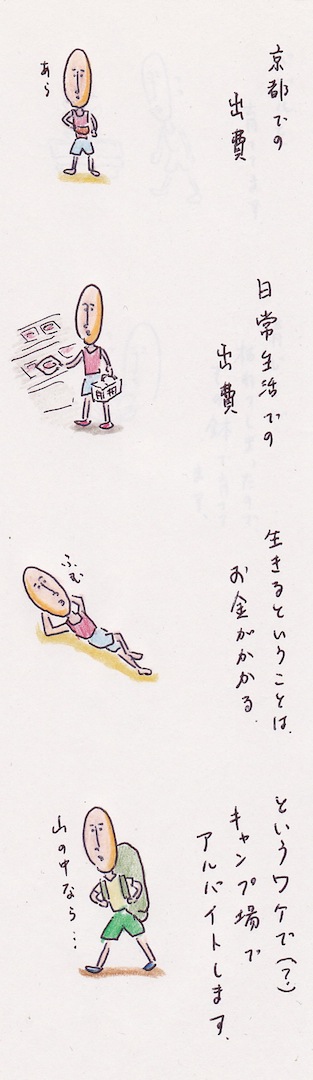 京都での
出費
あら
日常生活での
出費
生きるということは、
お金がかかる。
ふむ
というワケで(?)
キャンプ場で
アルバイトします。
山の中なら…